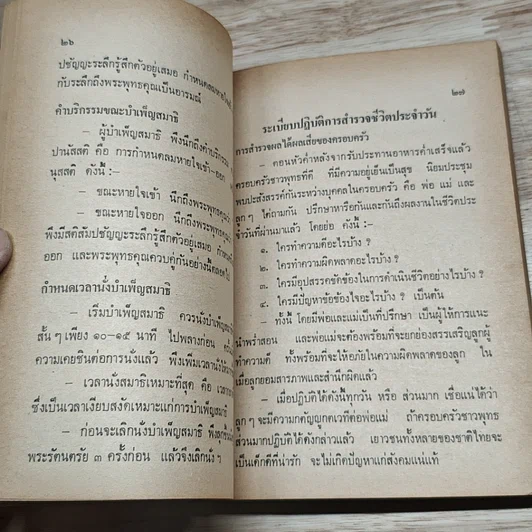 ๒๖
ปชัญญะระลึกรู้สึกตัวอยู่เสมอ กำหนดลมหายใจ
กับระลึกถึงพระพุทธคุณเป็นอารมณ์
คำบริกรรมขณะบำเพ็ญสมาธิ
– ผู้บำเพ็ญสมาธิ พึงนึกถึงคำบริกรรม
ปานัสสติ คือ การกำหนดลมหายใจเข้า–ออก
นุสสติ ดังนี้:–
– ขณะหายใจเข้า นึกถึงพระพุทธคุณว่า
– ขณะหายใจออก นึกถึงพระพุทธคุณว่า
พึงมีสติสัมปชัญญะระลึกรู้สึกตัวอยู่เสมอ กำหนด
ออก และพระพุทธคุณควบคู่กันอย่างนี้ตลอดไป
กำหนดเวลานั่งบำเพ็ญสมาธิ
– เริ่มบำเพ็ญสมาธิ ควรนั่งบำเพ็ญ
สั้น ๆ เพียง ๑๐–๑๕ นาที ไปพลางก่อน ครั้น
ความเคยชินต่อการนั่งแล้ว พึงเพิ่มเวลานั่งให้
– เวลานั่งสมาธิเหมาะที่สุด คือ เวลา
ซึ่งเป็นเวลาเงียบสงัดเหมาะแก่การบำเพ็ญสมาธิ
– ก่อนจะเลิกนั่งบำเพ็ญสมาธิ พึง
พระรัตนตรัย ๓ ครั้งก่อน แล้วจึงเลิกนั่ง ฯ
๒๗
ระเบียบปฏิบัติการสำรวจชีวิตประจำวัน
การสำรวจผลได้ผลเสียของครอบครัว
– ตอนหัวค่ำหลังจากรับประทานอาหารค่ำเสร็จแล้ว
ครอบครัวชาวพุทธที่ดี ที่มีความอยู่เย็นเป็นสุข นิยมประชุม
พบปะสังสรรค์กันระหว่างบุคคลในครอบครัว คือ พ่อ แม่ และ
ลูก ๆ ไต่ถามกัน ปรึกษาหารือกันและกันถึงผลงานในชีวิตประ
จำวันที่ผ่านมาแล้ว โดยย่อ ดังนี้ :–
๑. ใครทำความดีอะไรบ้าง ?
๒. ใครทำความผิดพลาดอะไรบ้าง ?
๓. ใครมีอุปสรรคขัดข้องในการดำเนินชีวิตอย่างไรบ้าง ?
๔. ใครมีปัญหาข้อข้องใจอะไรบ้าง ? เป็นต้น
– ทั้งนี้ โดยมีพ่อและแม่เป็นที่ปรึกษา เป็นผู้ให้การแนะ
นำพร่ำสอน และพ่อแม่จะต้องพร้อมที่จะยกย่องสรรเสริญลูกผู้
ทำความดี ทั้งพร้อมที่จะให้อภัยในความผิดพลาดของลูก ใน
เมื่อลูกยอมสารภาพและสำนึกผิดแล้ว
– เมื่อปฏิบัติได้ดังนี้ทุกวัน หรือ ส่วนมาก เชื่อแน่ได้ว่า
ลูก ๆ จะมีความกตัญญูกตเวทีต่อพ่อแม่ ถ้าครอบครัวชาวพุทธ
ส่วนมากปฏิบัติได้ดังกล่าวแล้ว เยาวชนทั้งหลายของชาติไทยจะ
เป็นเด็กดีที่น่ารัก จะไม่เกิดปัญหาแก่สังคมแน่แท้